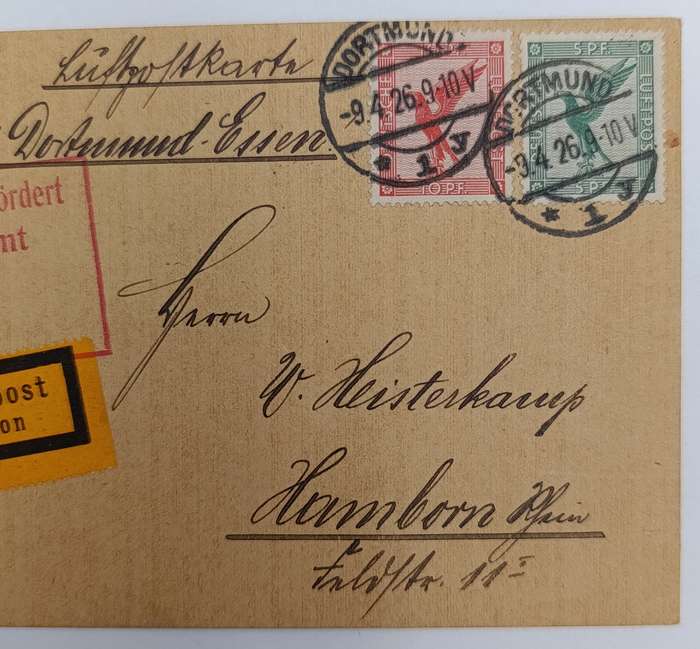 Luftpostkarte
Dortmund-Essen.
DORTMUND
-9.4.26.9-10V
* 1 y
DEUTSCHE
10 PF.
DORTMUND
-9.4.26.9-10V
* 1 y
5 PF.
LUFTPOST
5 PF.
ördert
mt
post
on
Herrn
W. Heisterkamp
Hamborn Rhein
Feldstr. 11 I